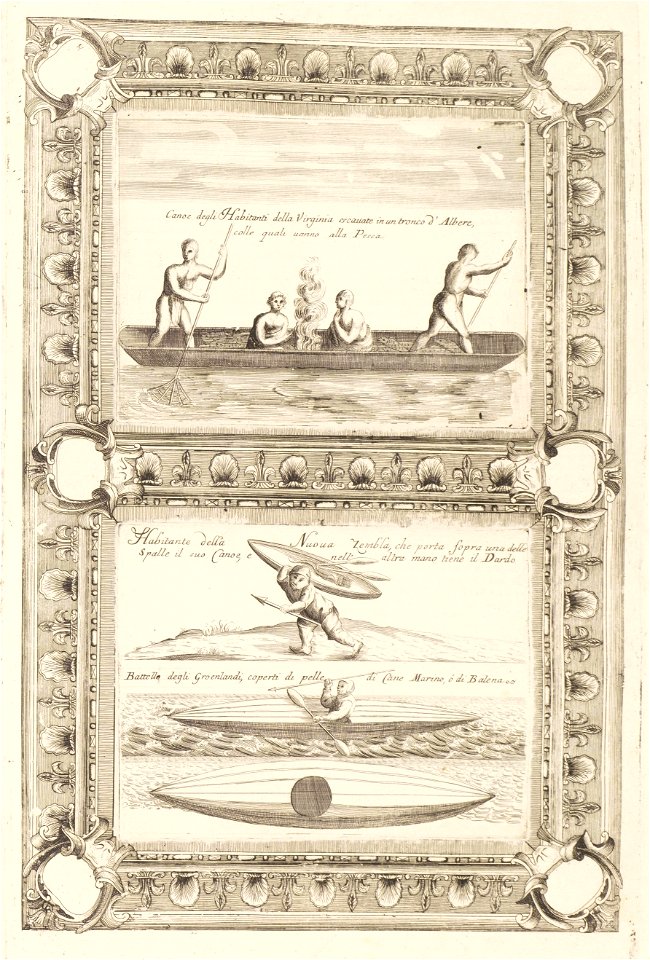 Canoe degli Habitanti della Virginia escauate in un tronco d' Albere,
colle quali uanno alla Pesca.
Habitante della Nuoua Zembla, che porta sopra una delle
Spalle il suo Canoe, e nell' altra mano tiene il Dardo
Battello degli Groenlandi, coperti di pelle di Cane Marino, ó di Balena